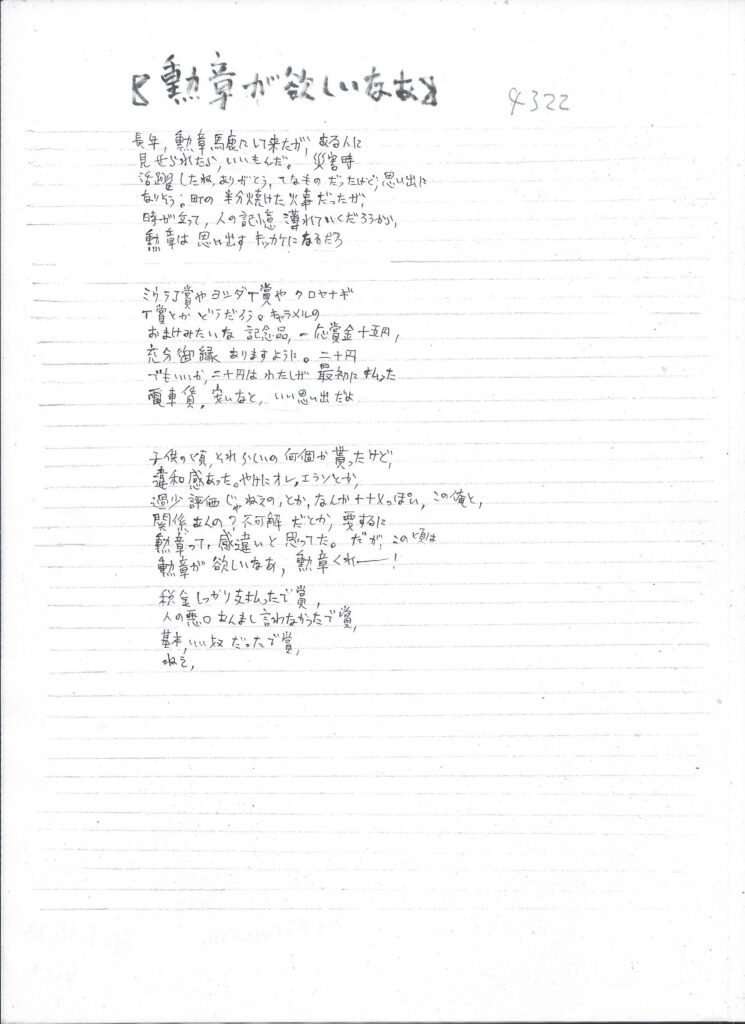 【勲章が欲しいなあ】
4322
長年,勲章馬鹿にして来たが,ある人に
見せられたら,いいもんだ。災害時
活躍したね,ありがとう,てなものだったけど,思い出に
なりそう。町の半分焼けた火事だったが,
時が立って,人の記憶薄れていくだろうから,
勲章は思い出すキッカケになるだろ
ミウラJ賞やヨシダT賞やクロヤナギ
T賞とかどうだろう。キャラメルの
おまけみたいな記念品,一応賞金十五円,
充分御縁ありますように。二十円
でもいいか,二十円はわたしが最初に払った
電車賃,安いなと,いい思い出だよ
子供の頃,それらしいの何個か貰ったけど,
違和感あった。やけにオレ,エラソとか,
過少評価じゃねえの,とか,なんかナナメっぽい,この俺と,
関係あんの?不可解だとか,要するに
勲章って,感違いと思ってた。だが,この頃は
勲章が欲しいなあ,勲章くれー!
税金しっかり支払ったで賞,
人の悪口あんまし言わなかったで賞,
基本,いい奴だったで賞,
ねえ,